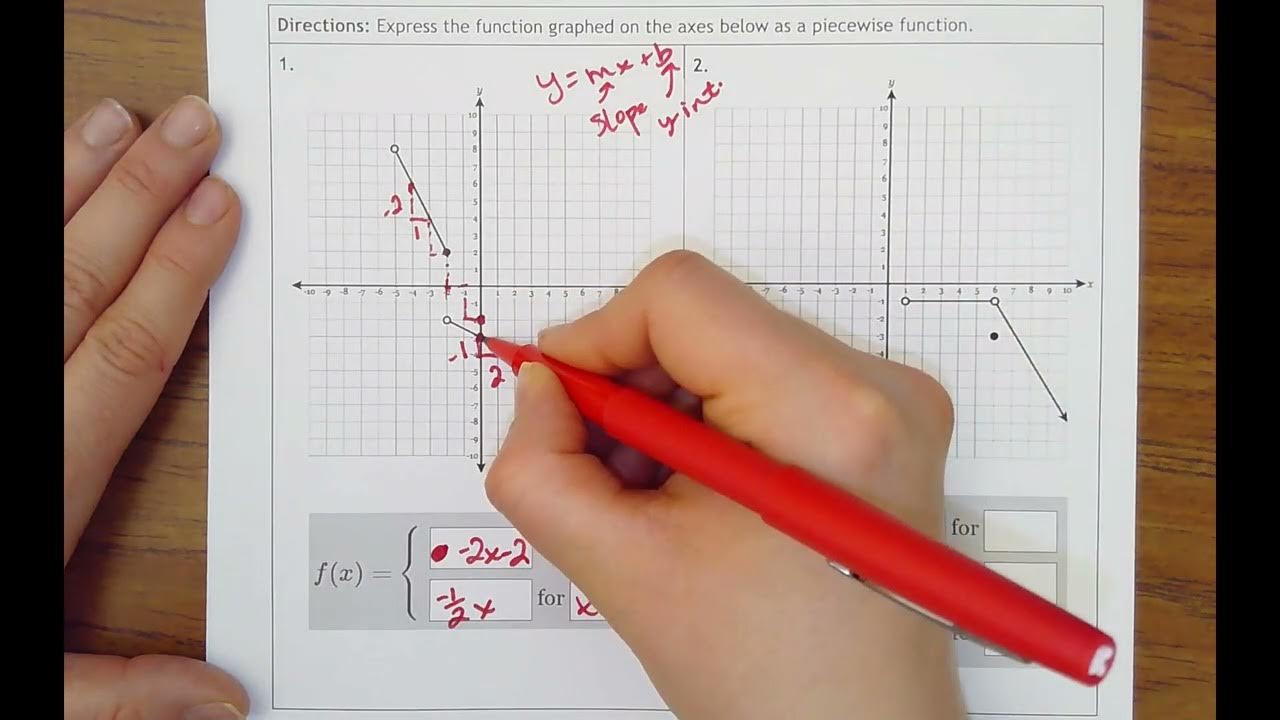 Directions: Express the function graphed on the axes below as a piecewise function.
1.
y = mx + b
slope
y int.
2.
y
10
9
8
7
6
5
4
3
2
1
-10 -9 -8 -7 -6 -5 -4 -3 -1 1 2 3 4 5 6 7 8
-1
-5
-6
-7
-8
-9
-10
-2
1
-1
2
y
10
9
8
7
6
5
4
3
2
1
-7 -6 -5 -4 -3 -2 -1 1 2 3 4 5 6 7 8 9 10 x
-1
-2
-3
-4
f(x) =
-2x-2
-1/2 x for x
for